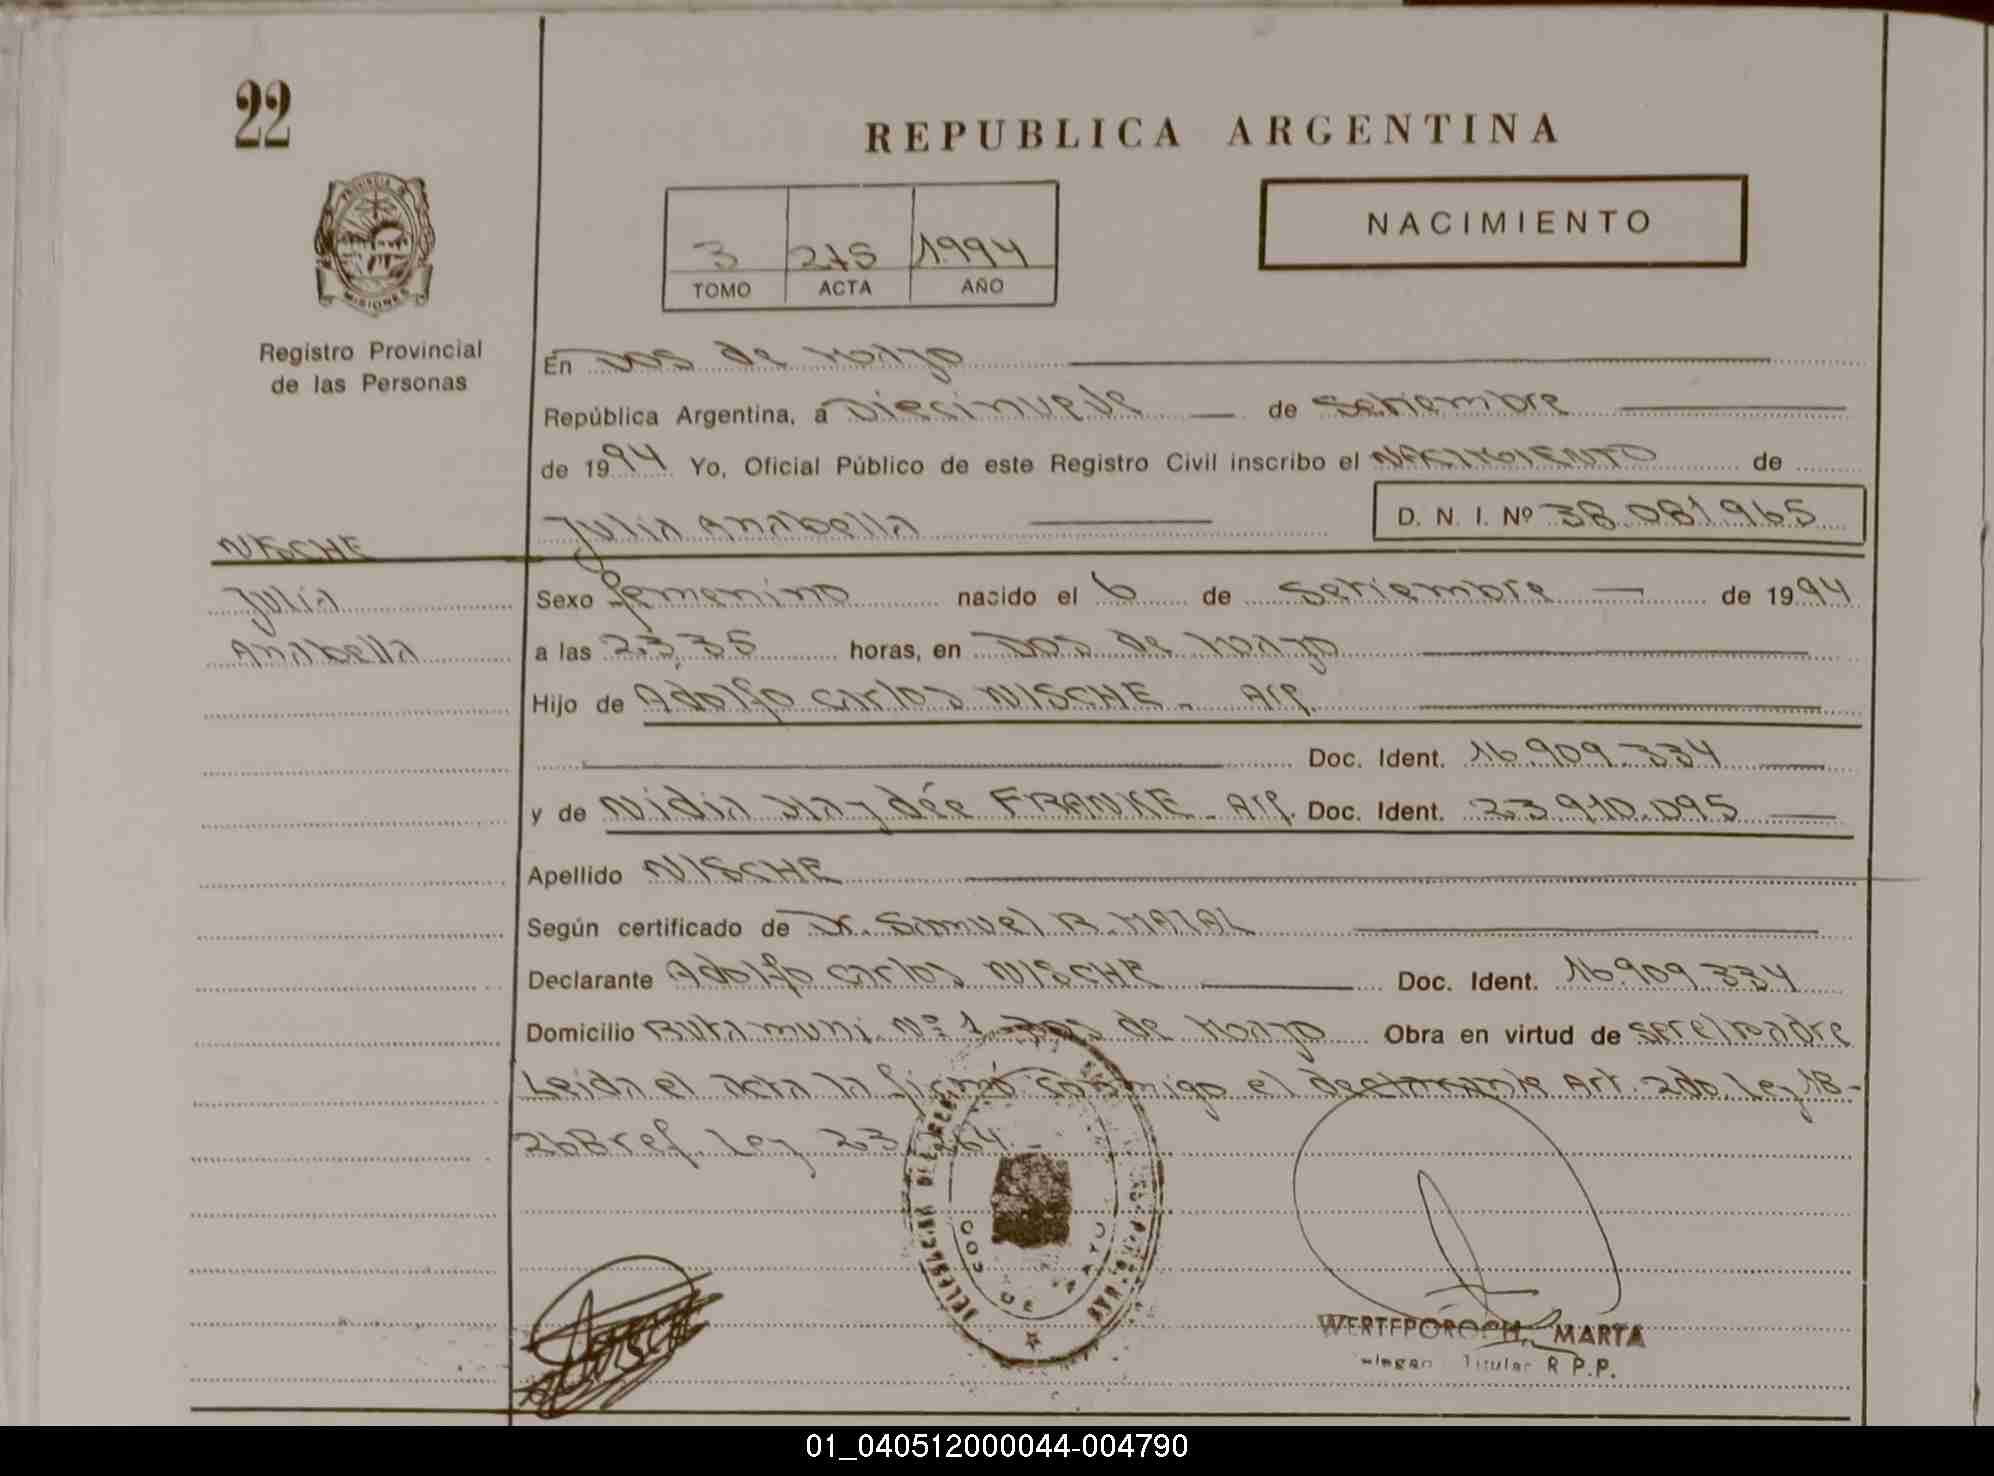 22
REPUBLICA ARGENTINA
PROVINCIA DE
MISIONES
NACIMIENTO
3 275 1994
TOMO ACTA AÑO
Registro Provincial
de las Personas
En Dos de Mayo
República Argentina, a Diecinueve de Setiembre
de 1994 Yo, Oficial Público de este Registro Civil inscribo el NACIMIENTO de
Julia Anabella D. N. I. Nº 38.081.965
NISCHE
Julia
Anabella
Sexo femenino nacido el 6 de Setiembre de 1994
a las 23,35 horas, en Dos de Mayo
Hijo de Adolfo Carlos NISCHE - Arg.
Doc. Ident. 16.909.334
y de Nidia Haydée FRANKE - Arg. Doc. Ident. 23.910.095
Apellido NISCHE
Según certificado de Dr. Samuel R.
Declarante Adolfo Carlos NISCHE Doc. Ident. 16.909.334
Domicilio Ruta muni. Nº 1 Dos de Mayo Obra en virtud de ser el padre
Leida el acta la firmó conmigo el declarante Art. 2do. Ley 18-
Ref. Ley 23
DOS DE MAYO
MARTA
Titular R.P.P.
01_040512000044-004790